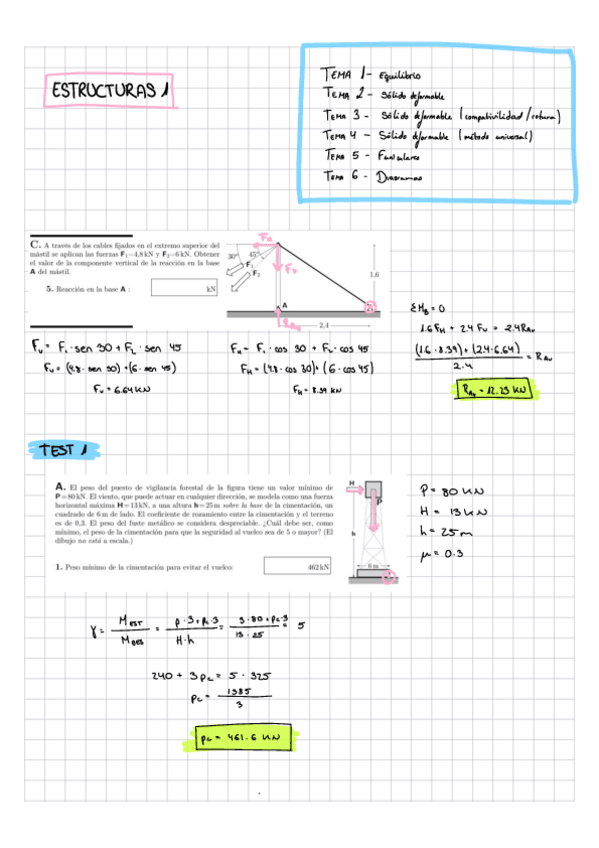 ESTRUCTURAS 1
TEMA 1 - Equilibrio
TEMA 2 - Sólido deformable
TEMA 3 - Sólido deformable (compativilidad/rotura)
TEMA 4 - Sólido deformable (método universal)
TEMA 5 - Funiculares
TEMA 6 - Diagramas
C. A través de los cables fijados en el extremo superior del
mástil se aplican las fuerzas F₁=4,8 kN y F₂=6 kN. Obtener
el valor de la componente vertical de la reacción en la base
A del mástil.
5. Reacción en la base A : kN
FH
30° 45°
F₁
F₂
Fv
1,6
A
RAv
2,4
Fv = F₁ · sen 30 + F₂ · sen 45
Fv = (4.8 · sen 30) + (6 · sen 45)
Fv = 6.64 KN
FH = F₁ · cos 30 + F₂ · cos 45
FH = (4.8 · cos 30) + (6 · cos 45)
FH = 8.39 KN
ΣMB = 0
1.6 FH + 2.4 Fv = 2.4 RAv
(1.6 · 8.39) + (2.4 · 6.64) / 2.4 = RAv
RAv = 12.23 KN
TEST 1
A. El peso del puesto de vigilancia forestal de la figura tiene un valor mínimo de
P=80 kN. El viento, que puede actuar en cualquier dirección, se modela como una fuerza
horizontal máxima H=13 kN, a una altura h=25 m sobre la base de la cimentación, un
cuadrado de 6 m de lado. El coeficiente de rozamiento entre la cimentación y el terreno
es de 0,3. El peso del fuste metálico se considera despreciable. ¿Cuál debe ser, como
mínimo, el peso de la cimentación para que la seguridad al vuelco sea de 5 o mayor? (El
dibujo no está a escala.)
1. Peso mínimo de la cimentación para evitar el vuelco: 462 kN
H
P
h
6 m
P = 80 KN
H = 13 KN
h = 25 m
μ = 0.3
γ = MEST / MDES = P · 3 + Pc · 3 / H · h = 3 · 80 + Pc · 3 / 13 · 25 = 5
240 + 3 Pc = 5 · 325
Pc = 1385 / 3
Pc = 461.6 KN